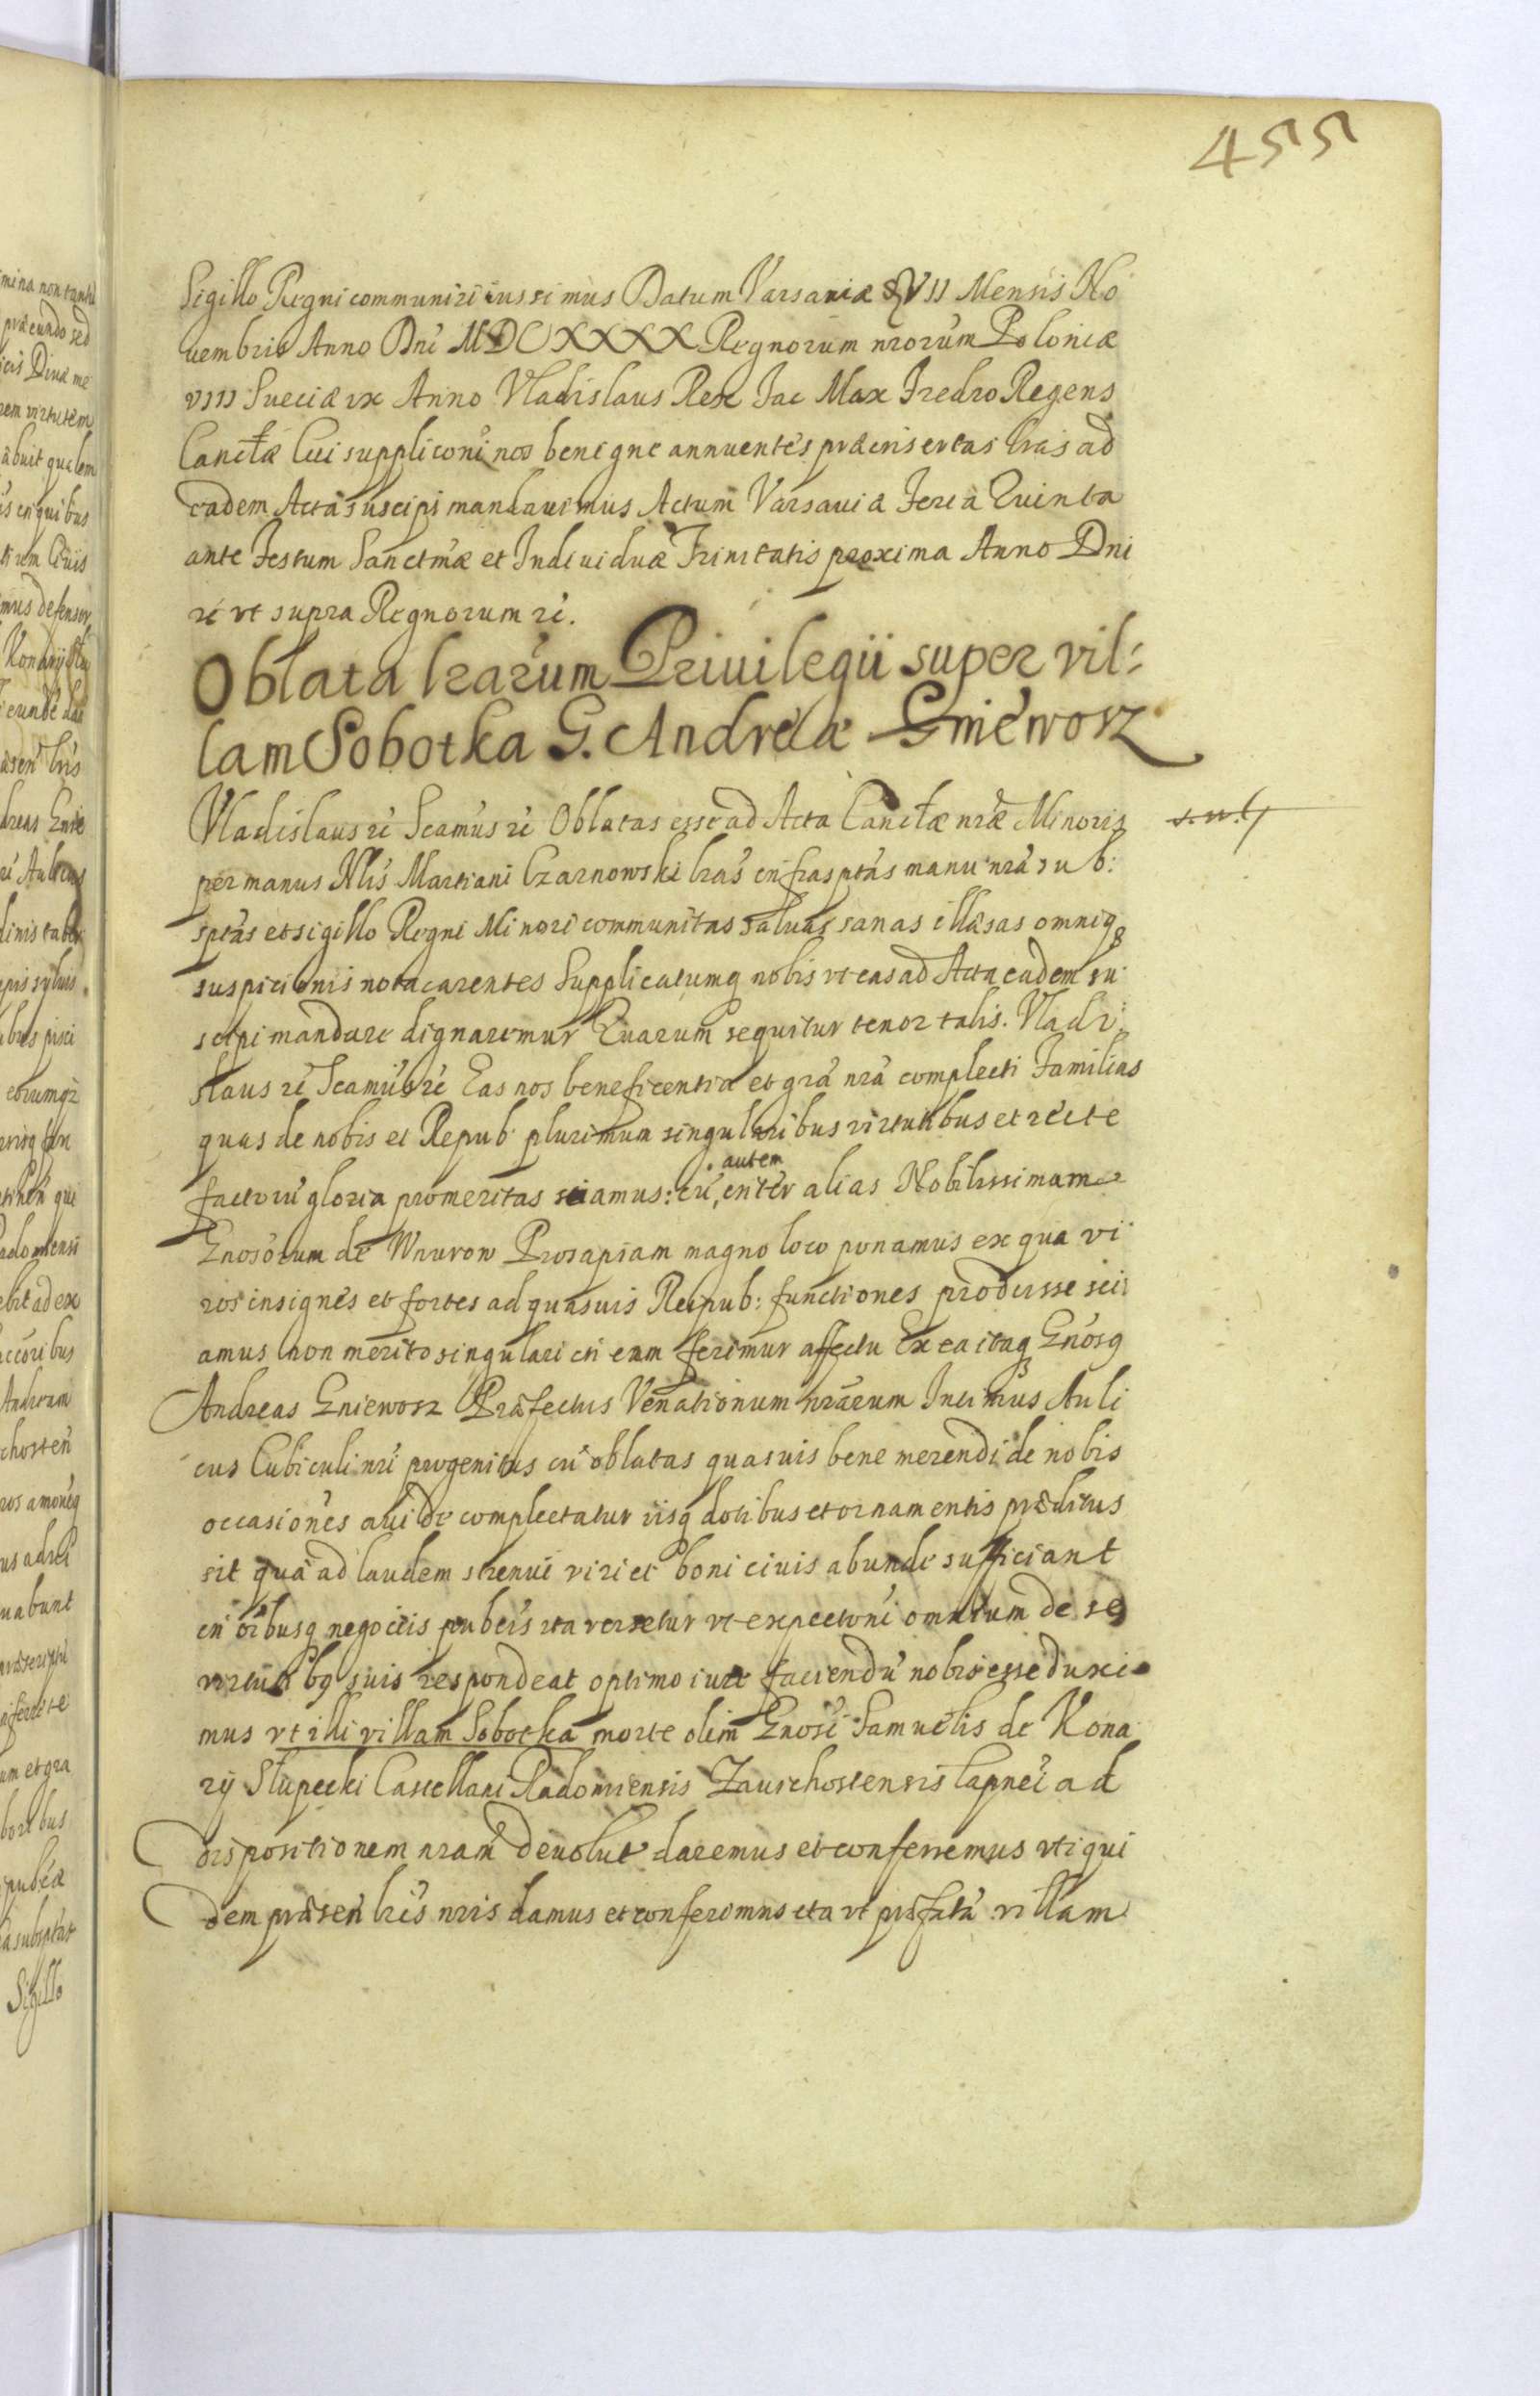 455
Sigillo Regni communiri iussimus Datum Varsaviæ XVII Mensis No
uembris Anno Dni MDCXXXX Regnorum nrorum Poloniæ
VIII Sueciæ ix Anno Vladislaus Rex Jac Max Fredro Regens
Canctæ Cui supplicōni nos benigne annuentes præinsertas lras ad
eadem Acta suscipi mandauimus Actum Varsauiæ Feria Quinta
ante Festum Sanctmæ et Indiuiduæ Trinitatis proxima Anno Dni
rč vt supra Regnorum rč.
Oblata lrarum Priuilegii super vil:
lam Sobotka G. Andreæ Gniewosz
Vladislaus rč Scamus rč Oblatas esse ad Acta Canctæ nræ Minoris
per manus Nlis Martiani Czarnowski lras infrasptas manu nra sub:
sptas et sigillo Regni Minori communitas saluas sanas illæsas omniq
suspicionis nota carentes Supplicatumq nobis vt eas ad Acta eadem su
scipi mandare dignaremur Quarum sequitur tenor talis. Vladi
slaus rč Scamus rč Eas nos beneficentia et gra nra complecti Familias
quas de nobis et Repub plurimum singularibus virtutibus et recte
factorū gloria promeritas sciamus: cū, autem inter alias Nobilissimam
Gnosorum de Wnurow Prosapiam magno loco ponamus ex qua vi
ros insignes et fortes ad quasuis Reipub: functiones prodiisse sci
amus non merito singulari in eam ferimur affectu Ex ea itaq Gnosq
Andreas Gniewosz Præfectus Venationum nrarum Intimus Auli
cus Cubiculi nri progenitus cū oblatas quasuis bene merendi de nobis
occasiones auide complectatur iisq dotibus et ornamentis præditus
sit qua ad laudem strenui viri et boni ciuis abunde sufficiant
in oibusq negotiis pubcis ita versetur vt expectoni omnium de se
virtutibq suis respondeat optimo iure faciendū nobis esse duxi
mus vt illi villam Sobotka morte olim Gnosi Samuelis de Kona
rÿ Słupecki Castellani Radomiensis Zauichostensis Capnei ad
dispositionem nram deuolut daremus et conferremus vti qui
dem præsen lris nris damus et conferimus ita vt præfatā villam